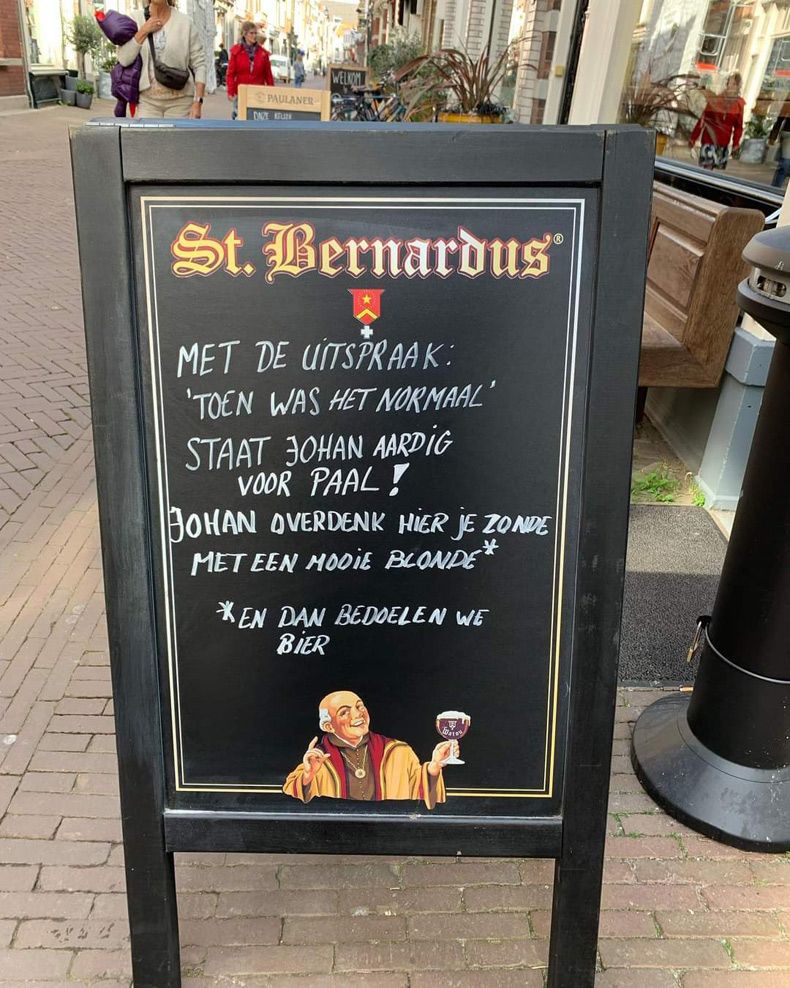 WELKOM
PAULANER
ONZE KEUKEN
St. Bernardus®
MET DE UITSPRAAK:
'TOEN WAS HET NORMAAL'
STAAT JOHAN AARDIG
VOOR PAAL!
JOHAN OVERDENK HIER JE ZONDE
MET EEN MOOIE BLONDE*
*EN DAN BEDOELEN WE
BIER
Watou